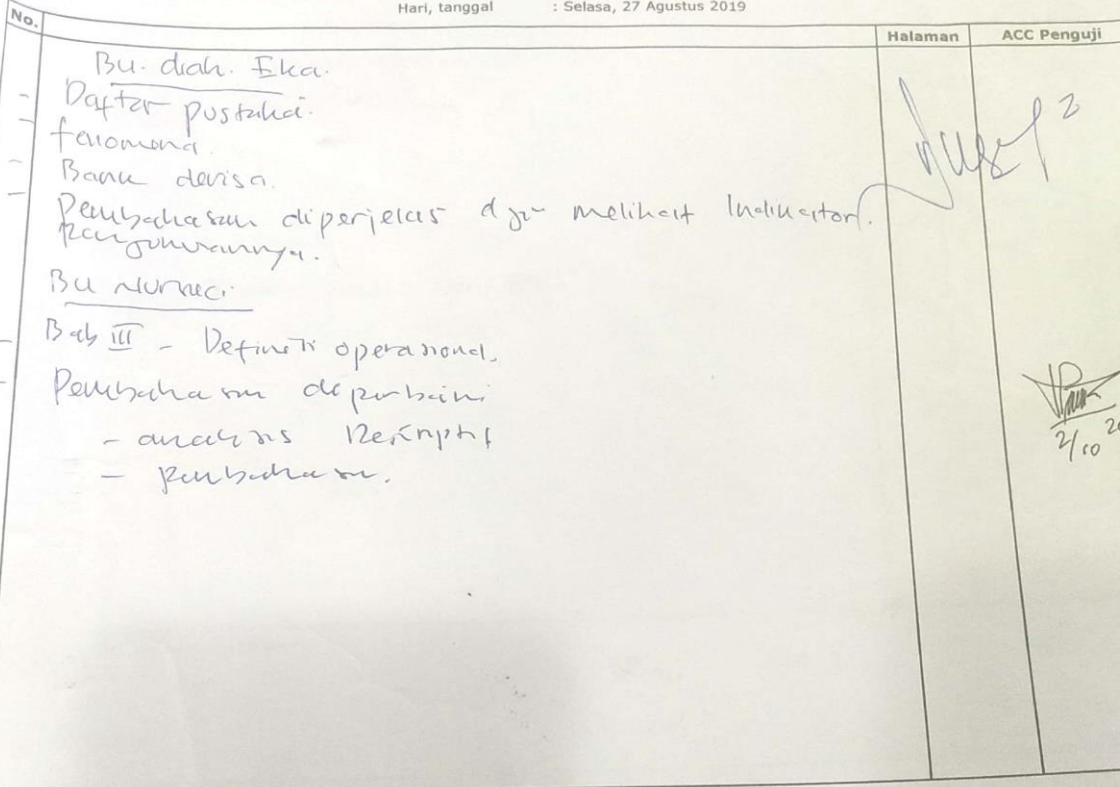 Hari, tanggal : Selasa, 27 Agustus 2019
No. Halaman ACC Penguji
Bu. diah. Eka.
Daftar pustaka.
fenomena.
Bank devisa.
Pembahasan diperjelas dgn melihat Indikator
pengukurannya.
Bu Nurneci
Bab III - Definisi operasional.
Pembahasan diperbaiki
- analisis Deskriptif
- pembahasan.
2/10